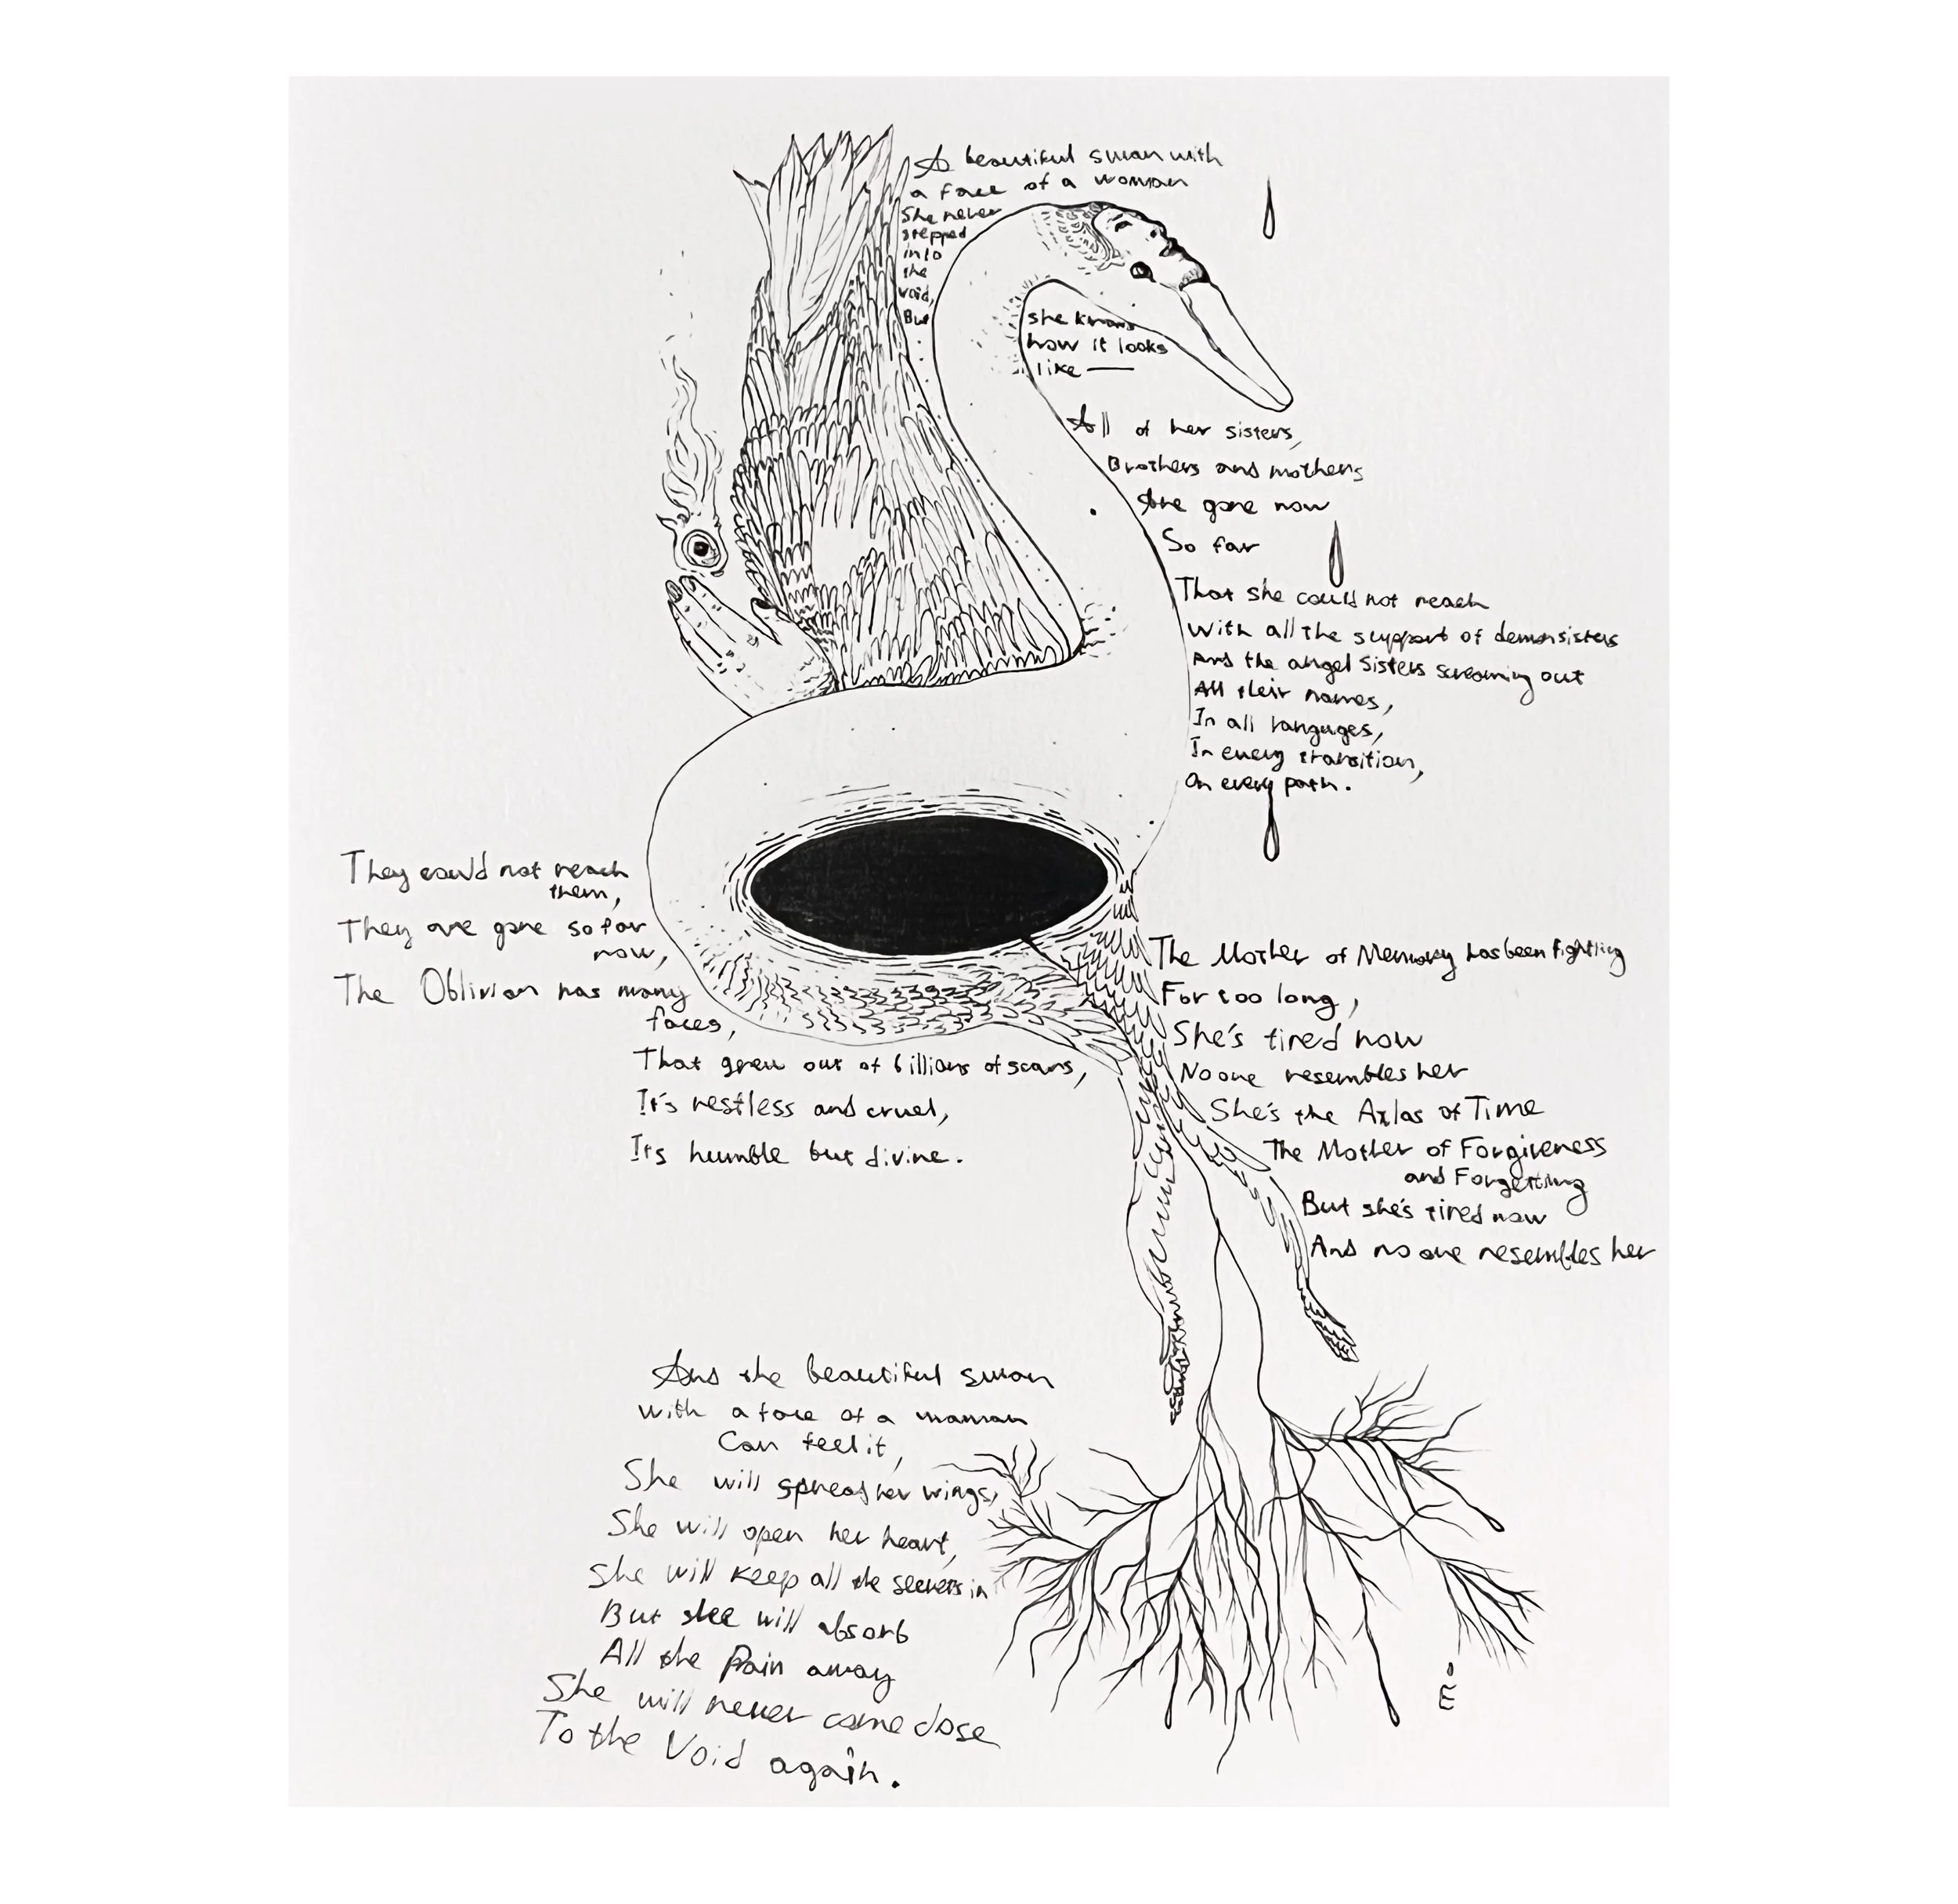 A beautiful swan with
a face of a woman
She never
stepped
into
the
void,
But
she knows
how it looks
like —
All of her sisters,
Brothers and mothers
Are gone now
So far
That she could not reach
With all the support of demonsisters
And the angel sisters screaming out
All their names,
In all languages,
In every transition,
On every path.
They could not reach
them,
They are gone so far
now,
The Oblivion has many
faces,
That grew out of billions of scars,
It's restless and cruel,
It's humble but divine.
The Mother of Memory has been fighting
For too long,
She's tired now
No one resembles her
She's the Atlas of Time
The Mother of Forgiveness
and Forgetting
But she's tired now
And no one resembles her
And the beautiful swan
with a face of a woman
Can feel it,
She will spread her wings,
She will open her heart,
She will keep all the secrets in
But she will absorb
All the Pain away
She will never come close
To the Void again.